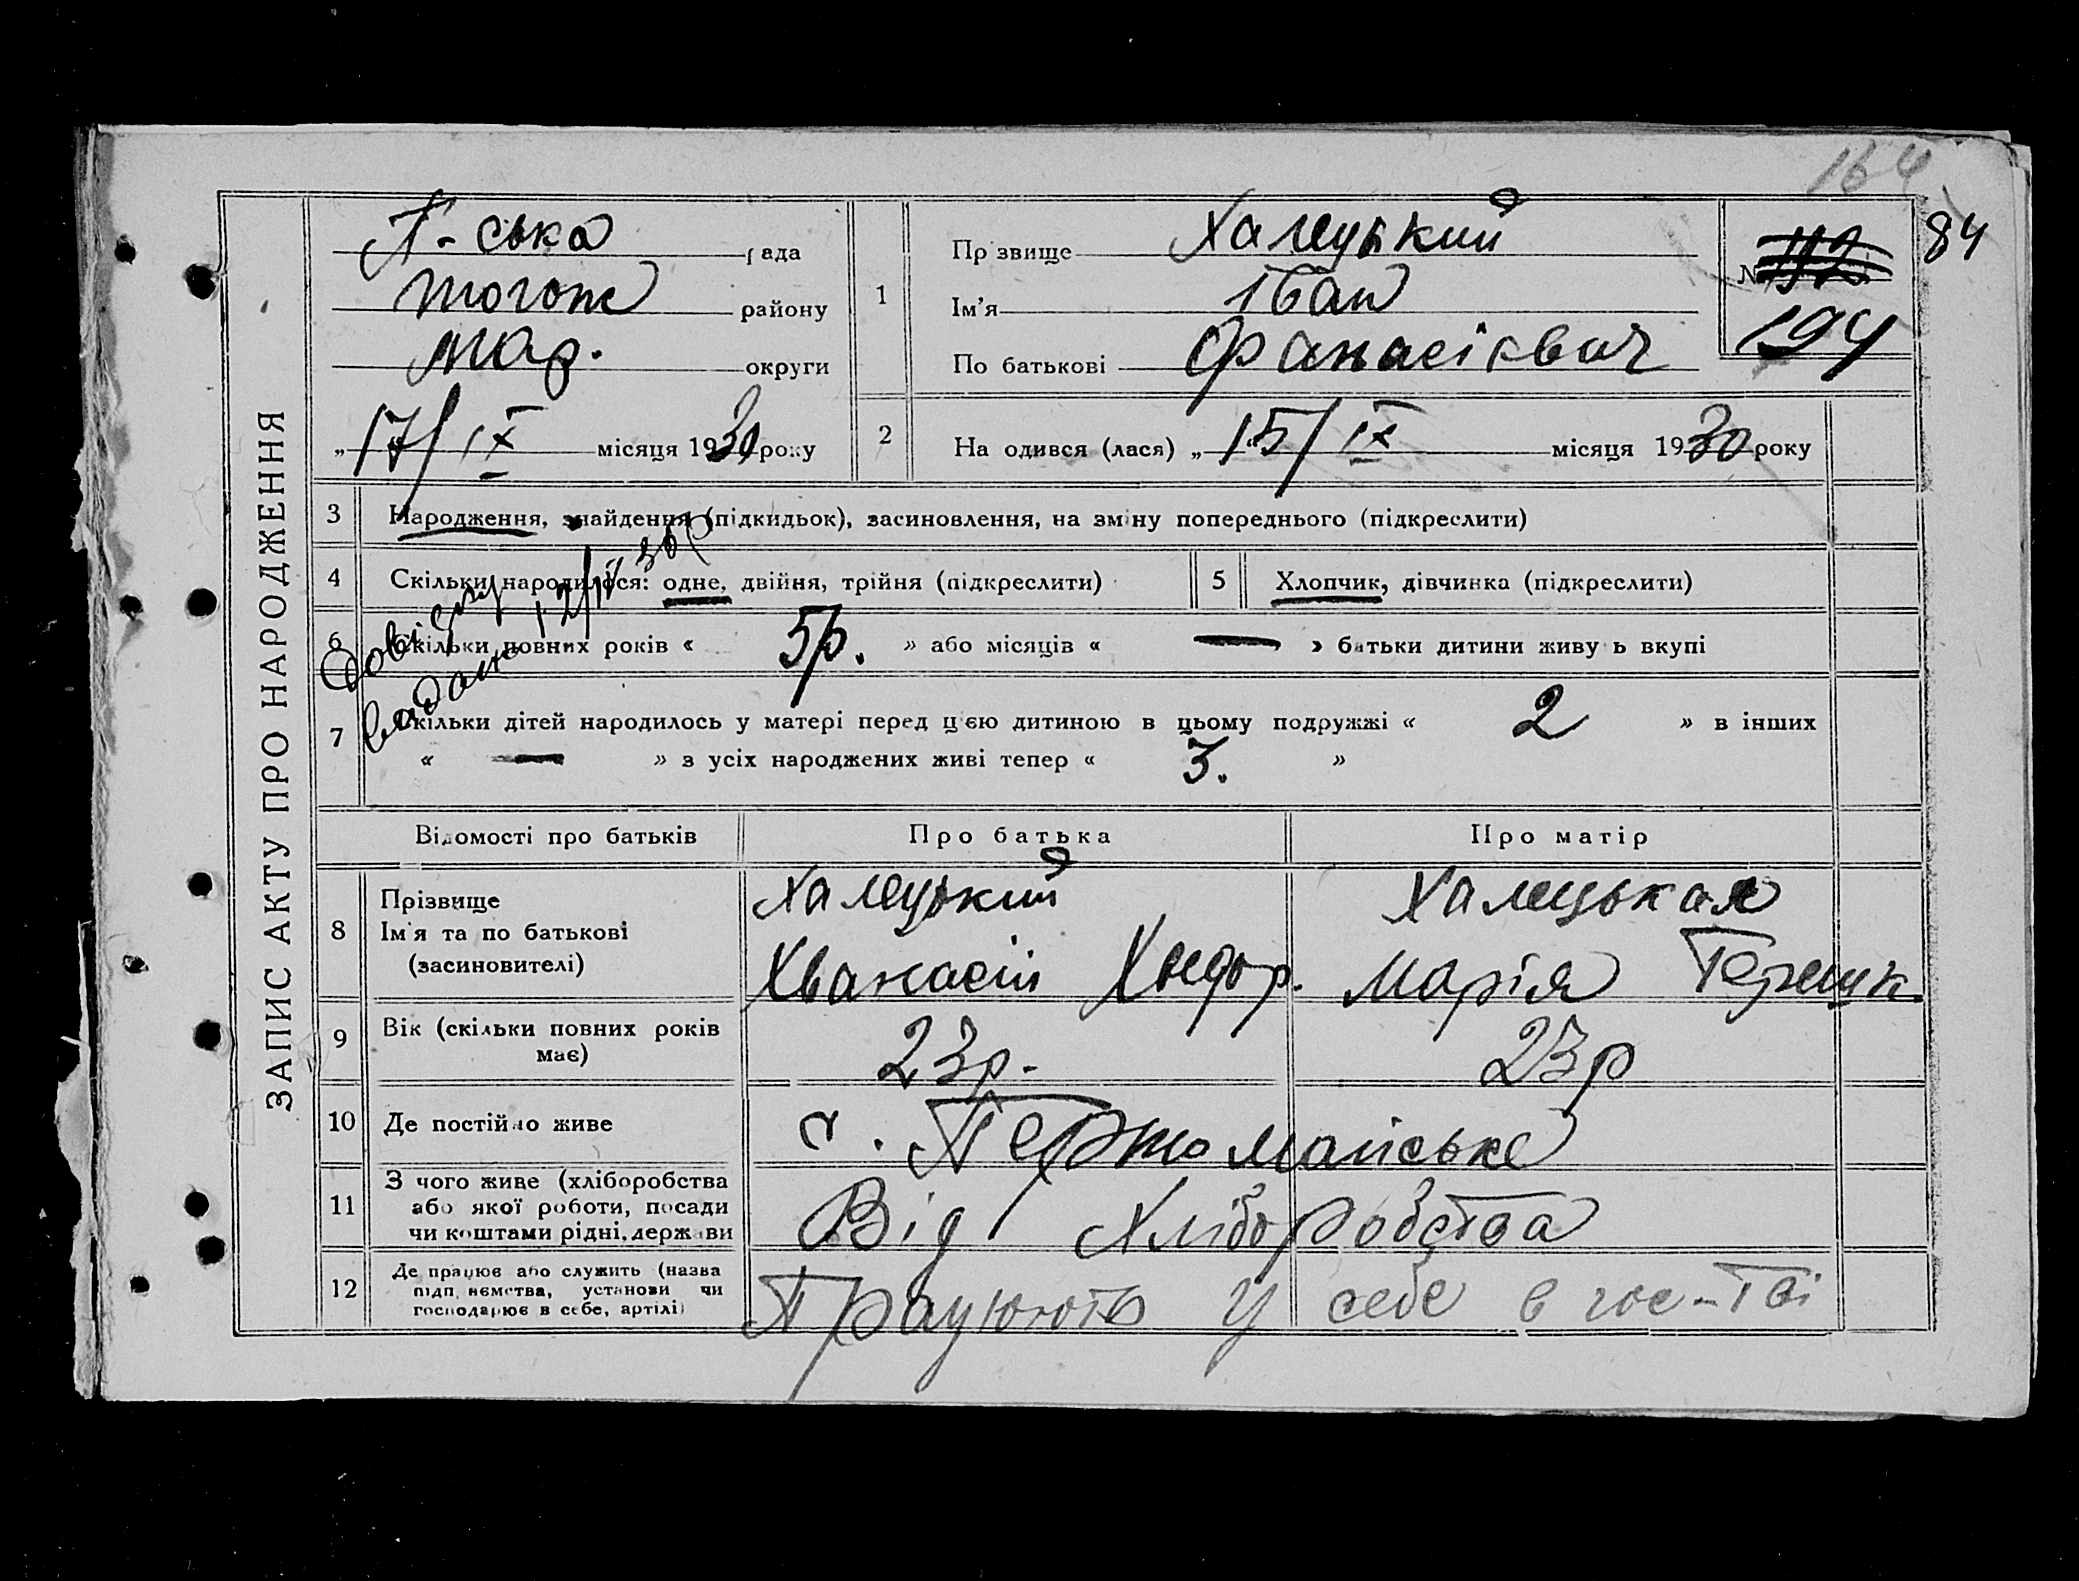 164
84
ЗАПИС АКТУ ПРО НАРОДЖЕННЯ
П-ська рада
тогож району
Мар. округи
„17/IX місяця 1930 року
1
Прізвище Халецький
Ім'я Іван
По батькові Фанасієвич
№ 112
194
2 Народився (лася) „15/IX місяця 1930 року
3 Народження, знайдення (підкидьок), засиновлення, на зміну попереднього (підкреслити)
4 Скільки народилося: одне, двійня, трійня (підкреслити)
5 Хлопчик, дівчинка (підкреслити)
6 Скільки повних років « 5р. » або місяців « — » батьки дитини живуть вкупі
7 Скільки дітей народилось у матері перед цією дитиною в цьому подружжі « 2 » в інших
« — » з усіх народжених живі тепер « 3. »
Відомості про батьків Про батька Про матір
8 Прізвище
Ім'я та по батькові
(засиновителі)
Халецький
Хванасій Хведор.
Халецькая
Марія Терешк.
9 Вік (скільки повних років
має)
23р. 23р
10 Де постійно живе с. Першомайське
11 З чого живе (хліборобства
або якої роботи, посади
чи коштами рідні, держави
Від Хліборобства
12 Де працює або служить (назва
підприємства, установи чи
господарює в себе, артілі)
Працюють у себе в гос-тві